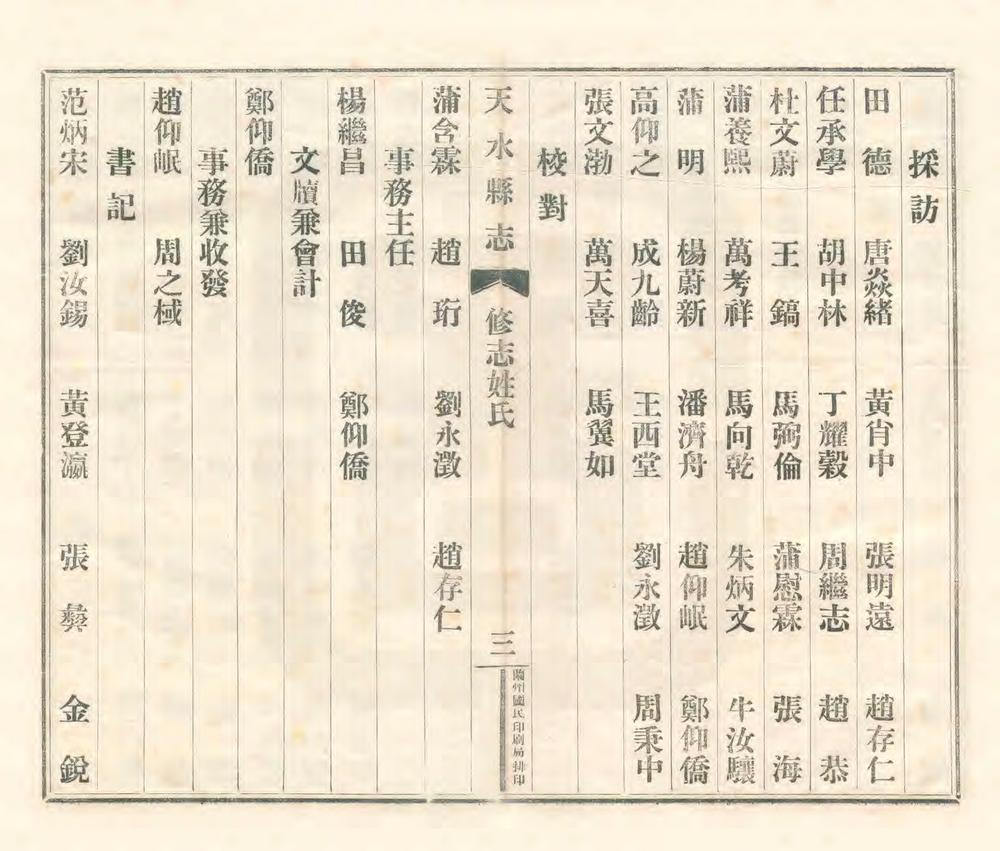 採訪
田德　唐焱緒　黃肖中　張明遠　趙存仁
任承學　胡中林　丁耀穀　周繼志　趙恭
杜文蔚　王鎬　馬弼倫　蒲慰霖　張海
蒲養熙　萬考祥　馬向乾　朱炳文　牛汝驤
蒲明　楊蔚新　潘濟舟　趙仰岷　鄭仰僑
高仰之　成九齡　王西堂　劉永澂　周秉中
張文渤　萬天喜　馬翼如
校對
天水縣志　修志姓氏　三　蘭州國民印刷局排印
蒲含霖　趙珩　劉永澂　趙存仁
事務主任
楊繼昌　田俊　鄭仰僑
文牘兼會計
鄭仰僑
事務兼收發
趙仰岷　周之棫
書記
范炳宋　劉汝錫　黃登瀛　張彝　金銳